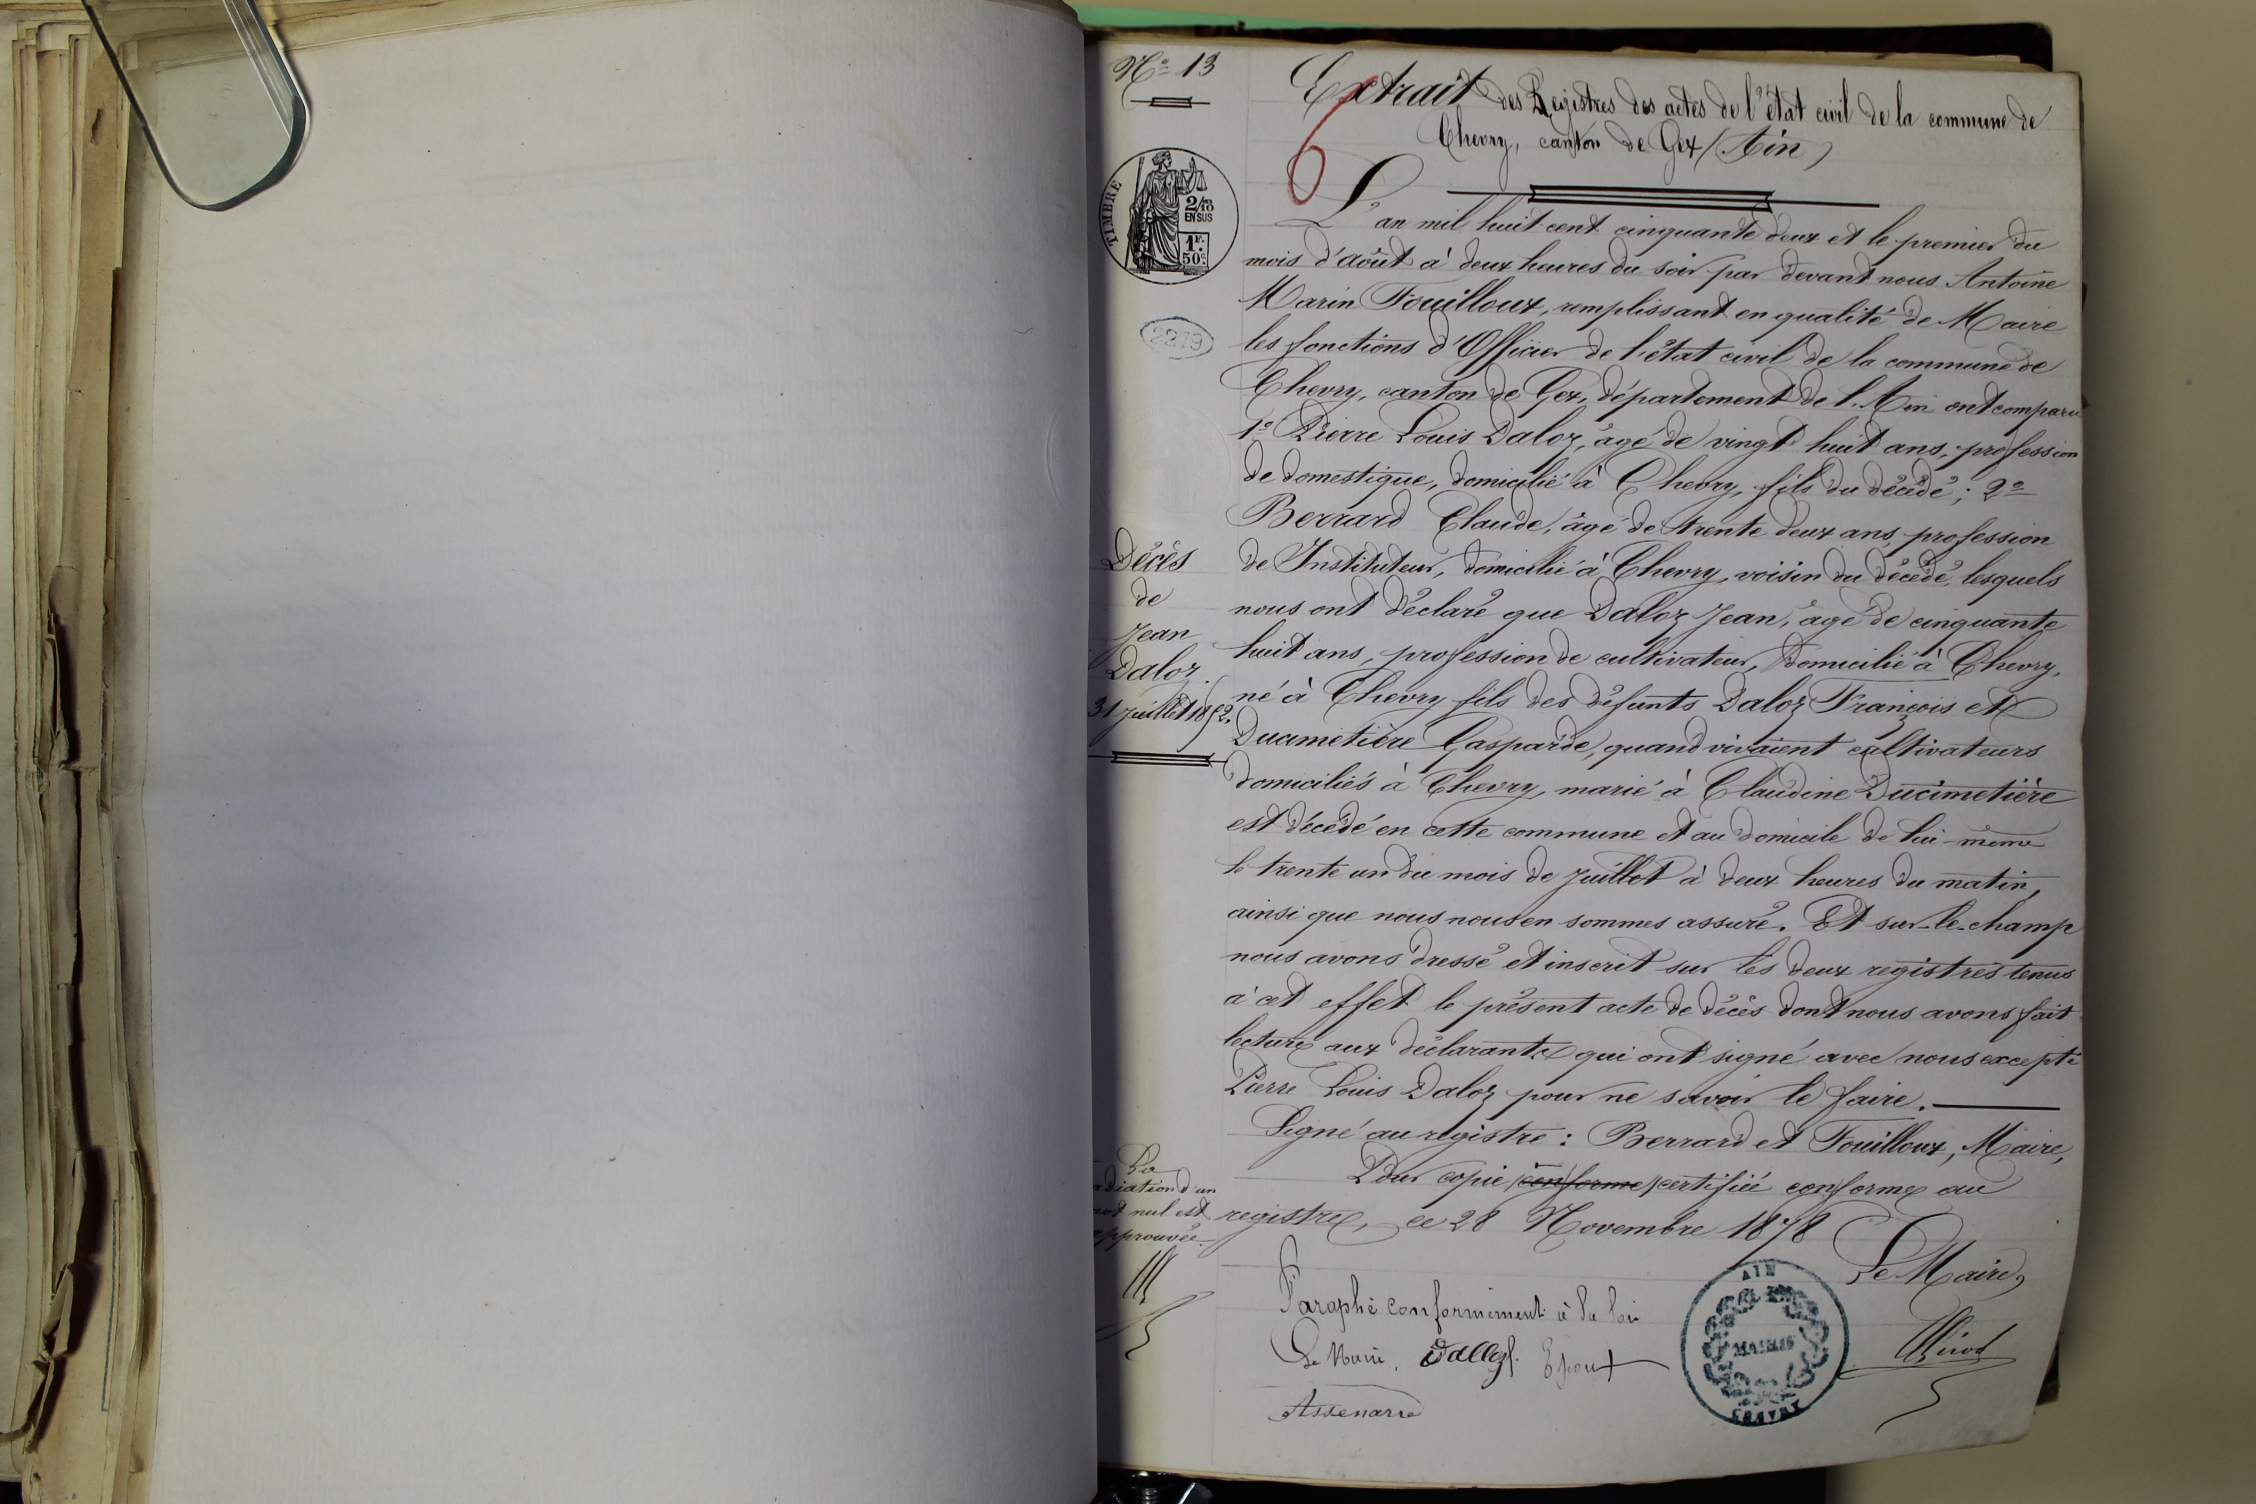 N° 13
Extrait des Registres des actes de l'état civil de la commune de
Chevry, canton de Gex (Ain)
6
TIMBRE
2/10
EN SUS
1F.
50c.
2279
L'an mil huit cent cinquante deux et le premier du
mois d'août à deux heures du soir par devant nous Antoine
Marin Fouilloux, remplissant en qualité de Maire
les fonctions d'Officier de l'état civil de la commune de
Chevry, canton de Gex, département de l'Ain ont comparu
1° Pierre Louis Daloz, âgé de vingt huit ans, profession
de domestique, domicilié à Chevry, fils du décédé ; 2°
Berrard Claude, âgé de trente deux ans, profession
de Instituteur, domicilié à Chevry, voisin du décédé, lesquels
nous ont déclaré que Daloz Jean, âgé de cinquante
huit ans, profession de cultivateur, domicilié à Chevry,
né à Chevry fils des défunts Daloz François et
Ducimetière Gasparde, quand vivaient cultivateurs
domiciliés à Chevry, marié à Claudine Ducimetière
est décédé en cette commune et au domicile de lui-même
le trente un du mois de juillet à deux heures du matin,
ainsi que nous nous en sommes assuré. Et sur-le-champ
nous avons dressé et inscrit sur les deux registres tenus
à cet effet le présent acte de décès dont nous avons fait
lecture aux déclarants qui ont signé avec nous excepté
Pierre Louis Daloz pour ne savoir le faire.
Signé au registre : Berrard et Fouilloux, Maire,
Pour copie conforme certifiée conforme au
registre, ce 28 Novembre 1878
Le Maire,
Décès
de
Jean
Daloz
31 juillet 1852.
La
radiation d'un
mot nul est
approuvée
Paraphé conformément à la loi
Le Maire,
AIN
MAIRIE
CHEVRY